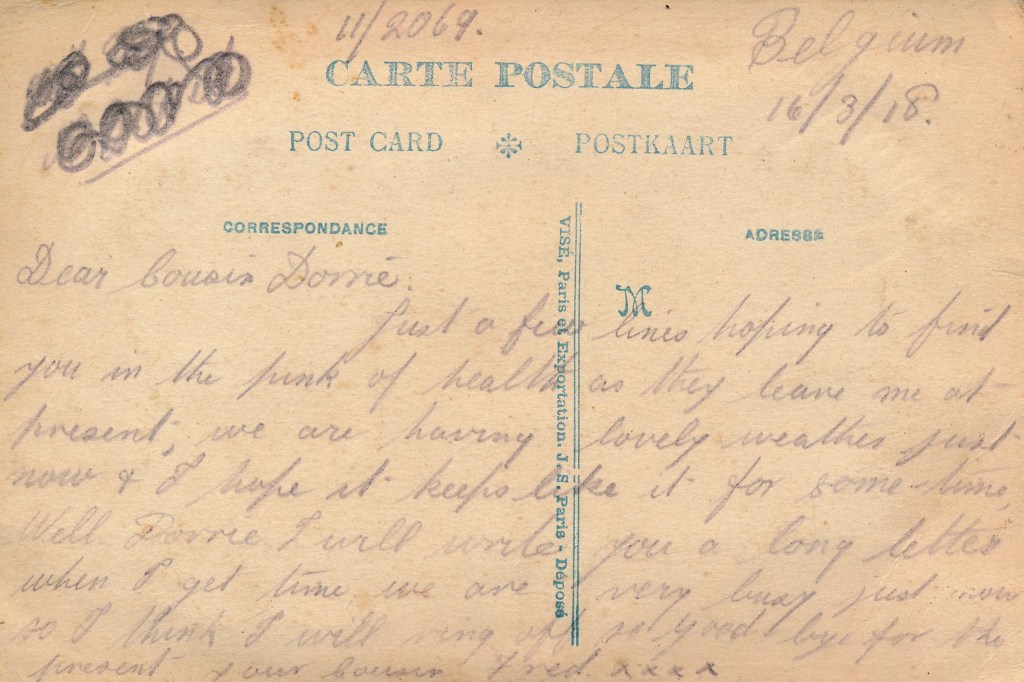 11/2069.
Belgium
16/3/18.
CARTE POSTALE
POST CARD
POSTKAART
CORRESPONDANCE
ADRESSE
M
VISÉ, Paris et Exportation. J. S. Paris - Déposé
Dear Cousin Dorrie.
Just a few lines hoping to find
you in the pink of health as they leave me at
present, we are having lovely weather just
now & I hope it keeps like it for some time
Well Dorrie I will write you a long letter
when I get time we are very busy just now
so I think I will ring off so good bye for the
present your cousin Fred. xxxx